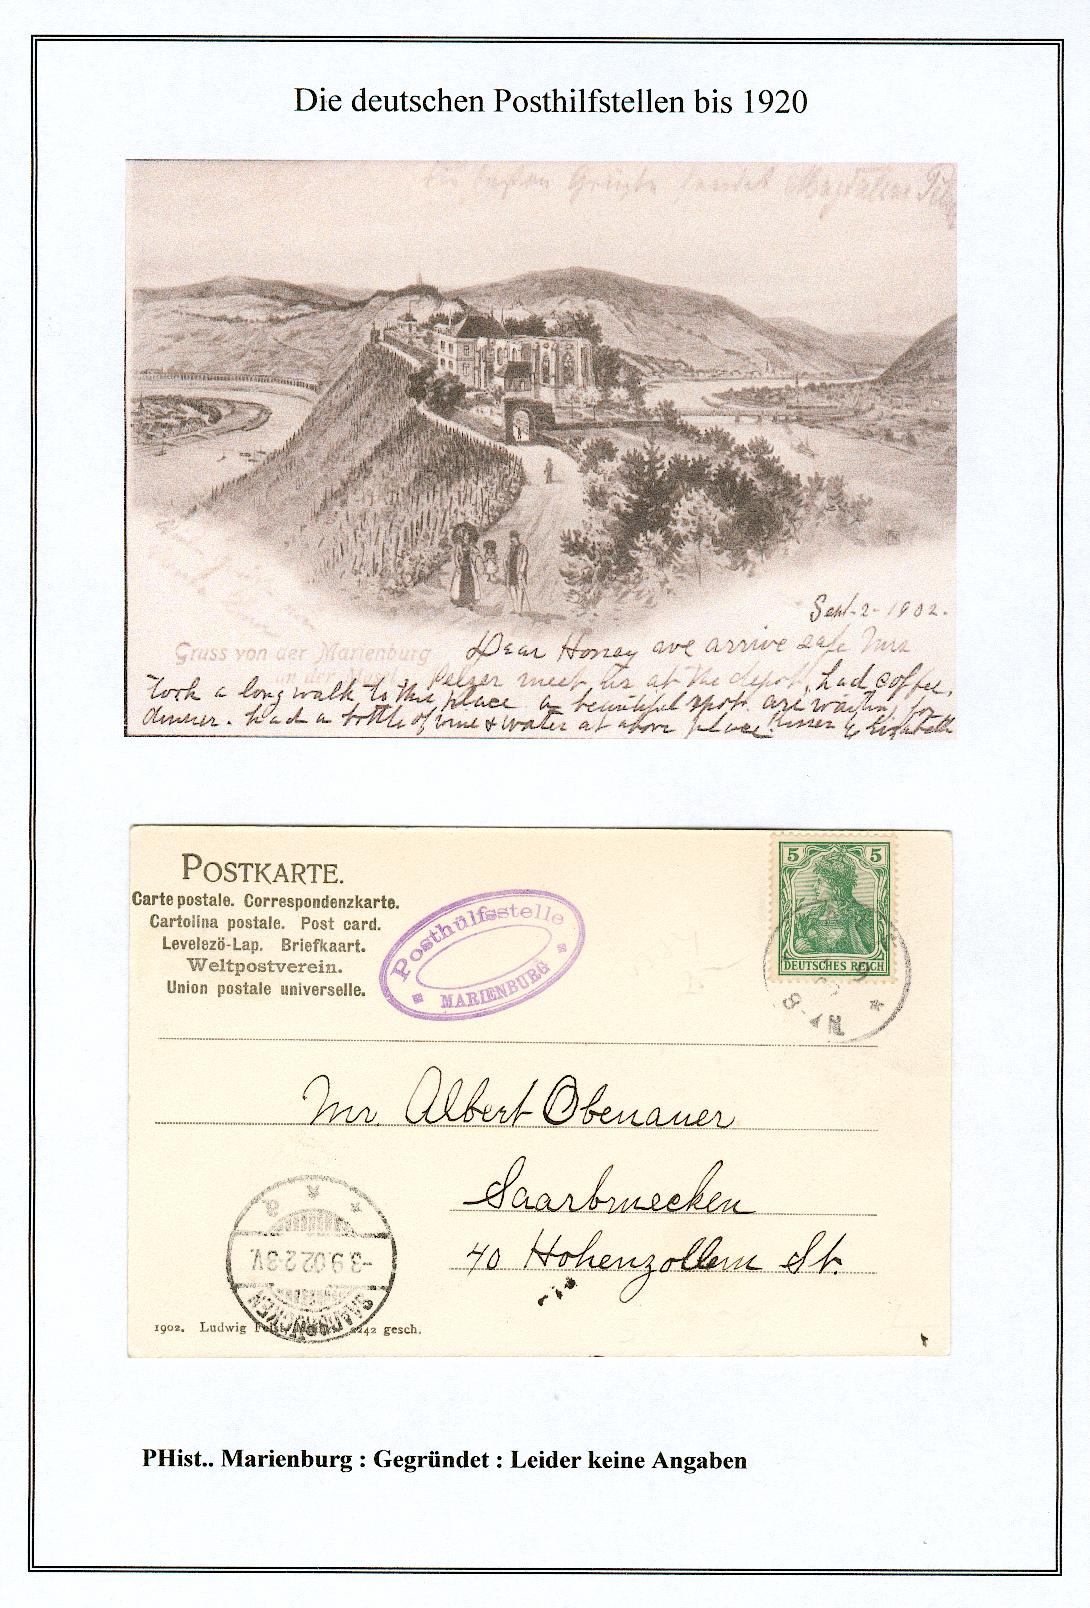 Die deutschen Posthilfstellen bis 1920
Grüsse sendet Magdalena
Sept-2-1902.
Gruss von der Marienburg
an der Mosel.
Dear Honey we arrive safe Mrs
Pelzer meet us at the depot, had coffee,
took a long walk to this place a beautiful spot are waiting for
dinner. had a bottle of wine & water at above place. Kisses Elisabeth
POSTKARTE.
Carte postale. Correspondenzkarte.
Cartolina postale. Post card.
Levelező-Lap. Briefkaart.
Weltpostverein.
Union postale universelle.
Posthülfsstelle
MARIENBURG
5 5
DEUTSCHES REICH
8-9 N
Mr Albert Obenauer
Saarbruecken
40 Hohenzollern St.
* a
-3.9.02.2-3V.
SAARBRÜCKEN
1902. Ludwig 2242 gesch.
PHist.. Marienburg : Gegründet : Leider keine Angaben